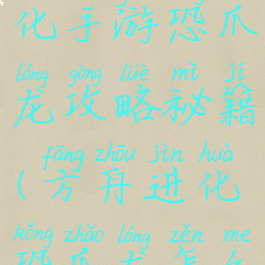 化手游恐爪
lóng gōng lüè mì jí
龙攻略秘籍
fāng zhōu jìn huà
(方舟进化
kǒng zhǎo lóng zěn me
恐爪龙怎么